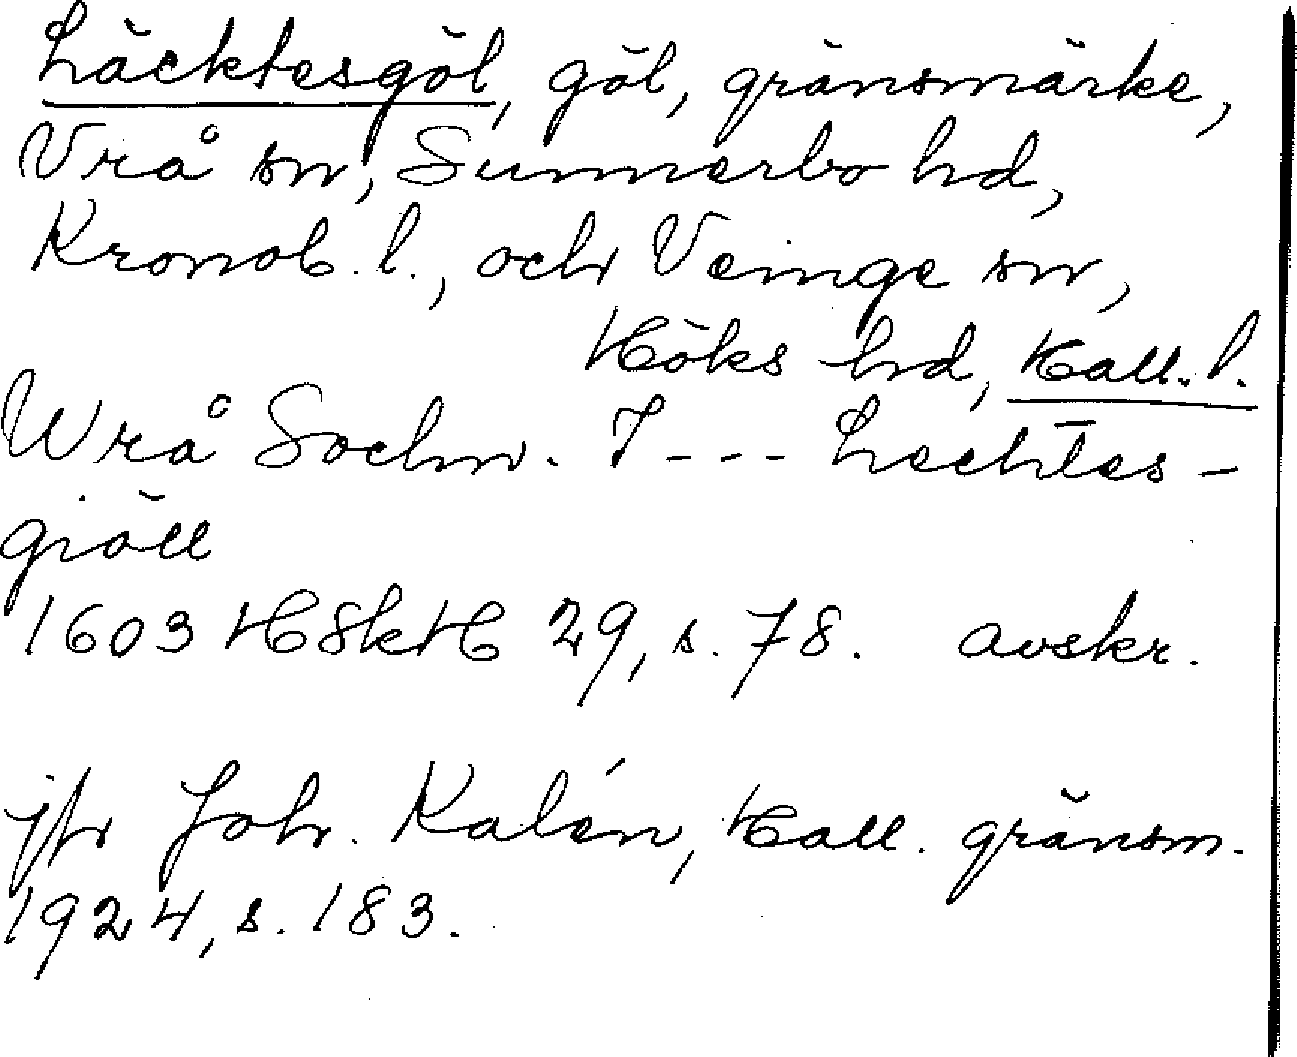 Läcktesgöl, göl, gränsmärke,
Vrå sn, Sunnerbo hd,
Kronob. l., och Veinge sn,
Höks hd, Hall. l.
Wrå Sochn. I --- Lechtes-
giöll
1603 HSkH 29, s. 78. avskr.
jfr Joh. Kalén, Hall. gränsm.
1924, s. 183.